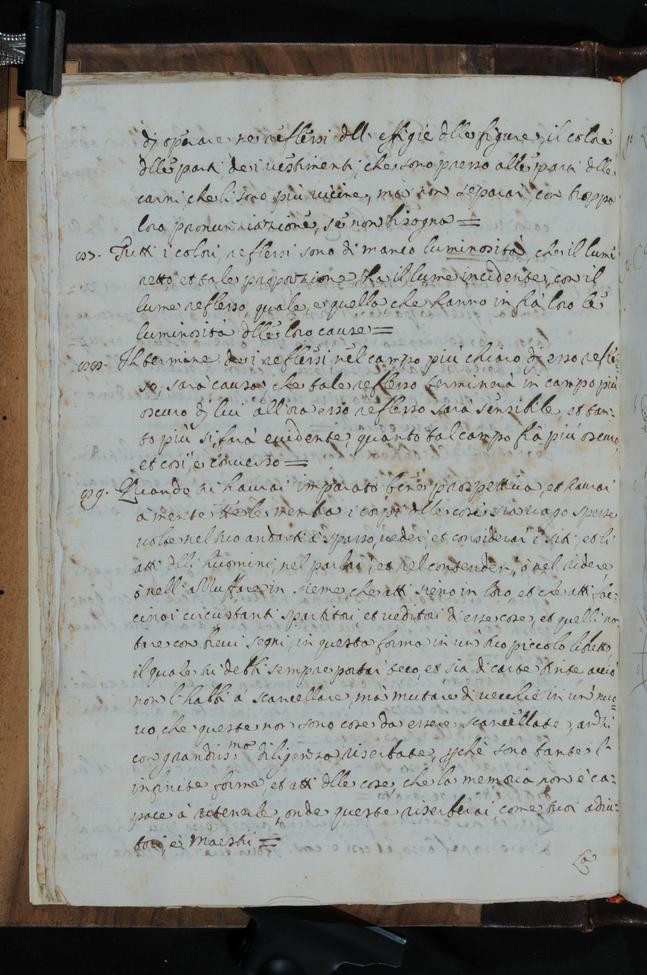 di operare ne reflessi dell'effigie delle figure, il colore
delle parti de i vestimenti, che sono presso alle parti delle
carni, che li sono più vicine, ma non separar, con troppa
loro pronuntiatione, se non bisogna =
Tutti i colori, reflessi sono di manco luminosità che il lumi
retto, et tale proportione ha il lume incidente, con il
lume reflesso, quale, è quella, che hanno in fra loro le
luminosita delle loro cause =
Il termine de i reflessi nel campo più chiaro di esso refle-
so, sarà causa che tale reflesso terminarà in campo più
oscuro di lui all'ora esso reflesso sarà sensibile, et tan-
to più si farà evidente, quanto tal campo fia più oscuro,
et così è converso =
Quando tu haurai imparato bene prospettiva, et haurai
a mente tutte le membra i corpi delle cose sia vago spesse
volte nel tuo andarti à spasso, veder, et considerar i siti, et li
atti delli huomini, nel parlar, et nel contender, ò nel ridere
ò nell'azzuffare insieme che atti sieno in loro et che atti fac-
cino i circustanti spartitori, et veditori di esse cose, et quelli no-
tare con brevi segni, in questa forma in un tuo piccolo libretto
il quale tu debbi sempre portar teco, et sia di carte tinte acciò
non l'habbi à scancellare, ma mutare di vecchie in un nuo-
vo che queste non sono cose da essere scancellate, anzi
con grandissma diligenza riserbate, pche sono tante l'
infinite forme et atti delle cose, che la memoria non è ca-
pace à ritenerle, onde queste riserberai, come tuoi adiu-
tori, e Maestri =